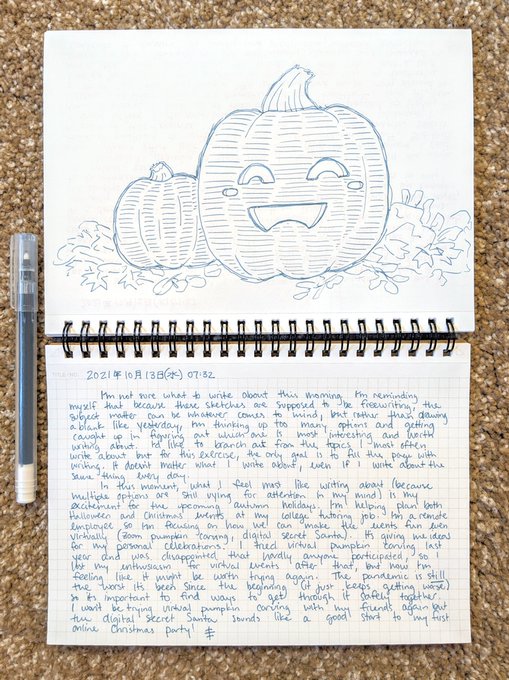 2021年10月13日(水) 07:32
I'm not sure what to write about this morning. I'm reminding
myself that because these sketches are supposed to be freewriting, the
subject matter can be whatever comes to mind, but rather than drawing
a blank like yesterday, I'm thinking up too many options and getting
caught up in figuring out which one is most interesting and worth
writing about. I'd like to branch out from the topics I most often
write about but for this exercise, the only goal is to fill the page with
writing. It doesn't matter what I write about, even if I write about the
same thing every day.
In this moment, what I feel most like writing about (because
multiple options are still vying for attention in my mind) is my
excitement for the upcoming autumn holidays. I'm helping plan both
Halloween and Christmas events at my college tutoring job. I'm a remote
employee so I'm focusing on how we can make the events fun even
virtually (Zoom pumpkin carving, digital secret Santa). It's giving me ideas
for my personal celebrations! I tried virtual pumpkin carving last
year and was disappointed that hardly anyone participated, so I
lost my enthusiasm for virtual events after that, but now I'm
feeling like it might be worth trying again. The pandemic is still
the worst it's been since the beginning (it just keeps getting worse)
so it's important to find ways to get through it safely together.
I won't be trying virtual pumpkin carving with my friends again but
the digital secret Santa sounds like a good start to my first
online Christmas party!